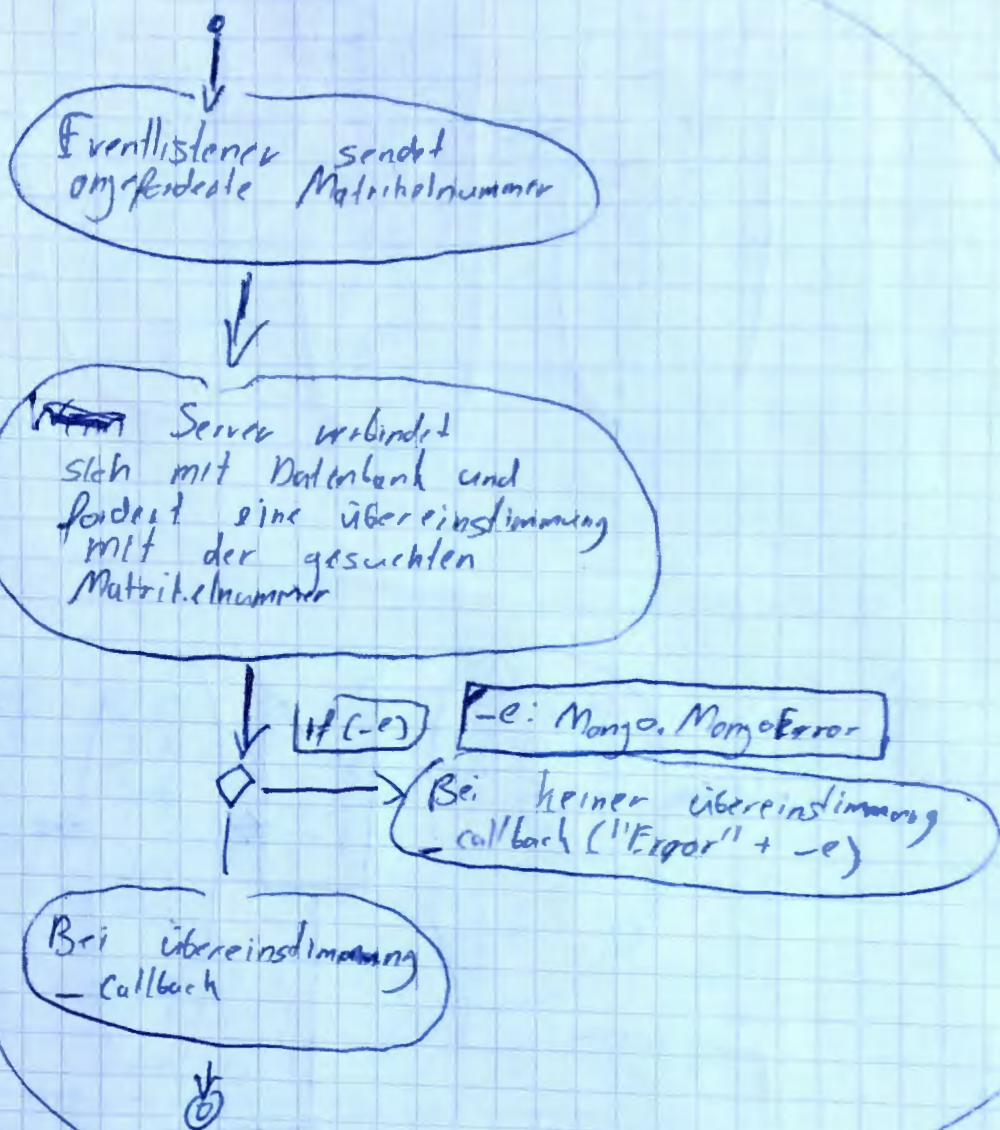 Eventlistener sendet
angeforderte Matrikelnummer
Server verbindet
sich mit Datenbank und
fordert eine übereinstimmung
mit der gesuchten
Matrikelnummer
if (_e)
_e: Mongo.MongoError
Bei keiner übereinstimmung
_callback ("Error" + _e)
Bei übereinstimmung
_callback